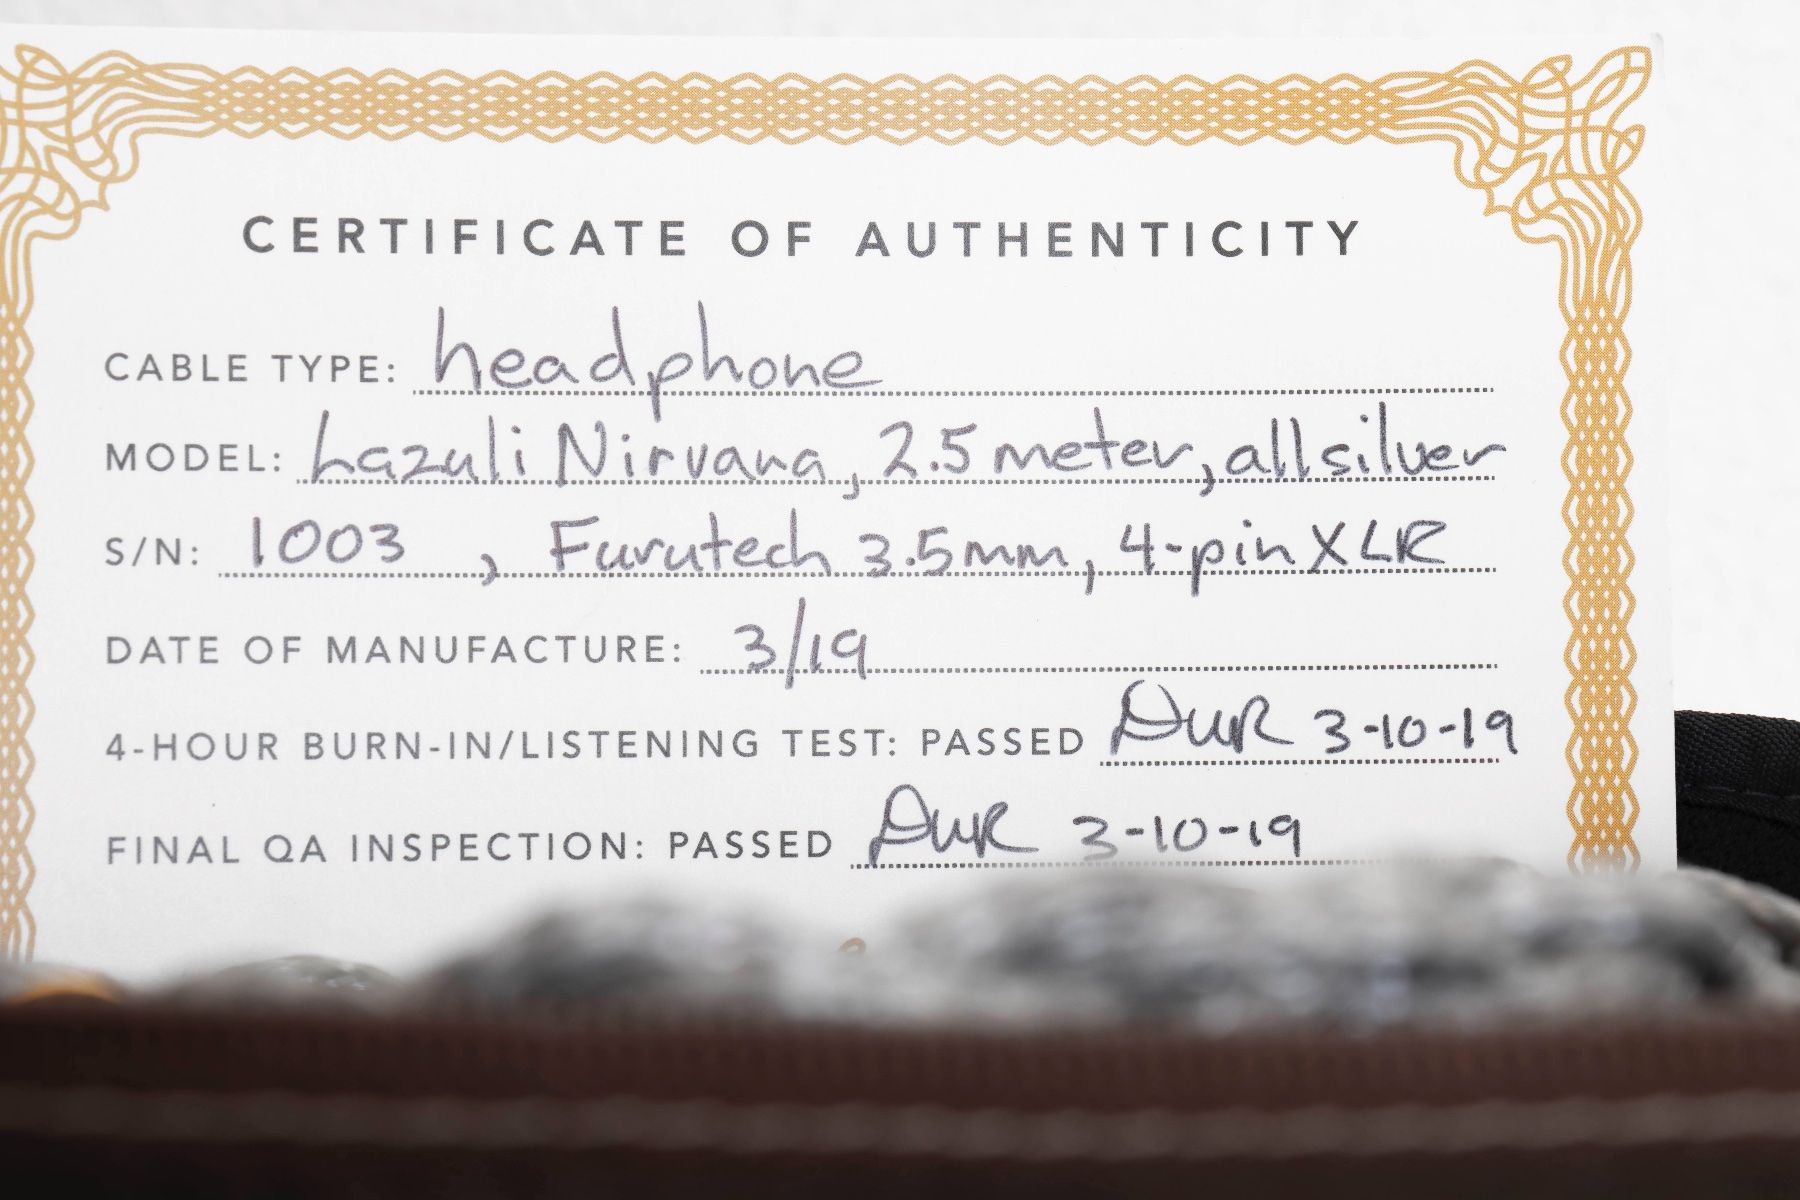 CERTIFICATE OF AUTHENTICITY
CABLE TYPE: headphone
MODEL: Lazuli Nirvana, 2.5 meter, all silver
S/N: 1003 , Furutech 3.5mm, 4-pin XLR
DATE OF MANUFACTURE: 3/19
4-HOUR BURN-IN/LISTENING TEST: PASSED 3-10-19
FINAL QA INSPECTION: PASSED 3-10-19